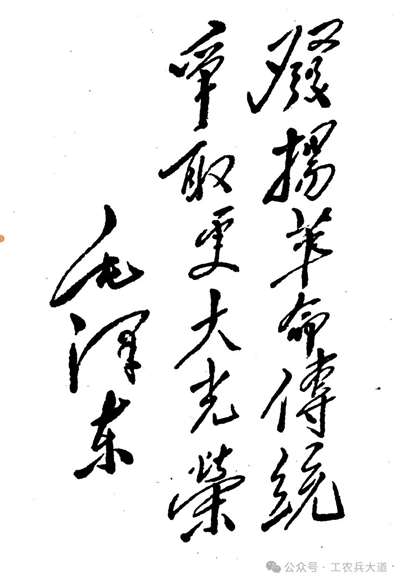 發揚革命傳統
爭取更大光榮
毛澤东
公众号·工农兵大道